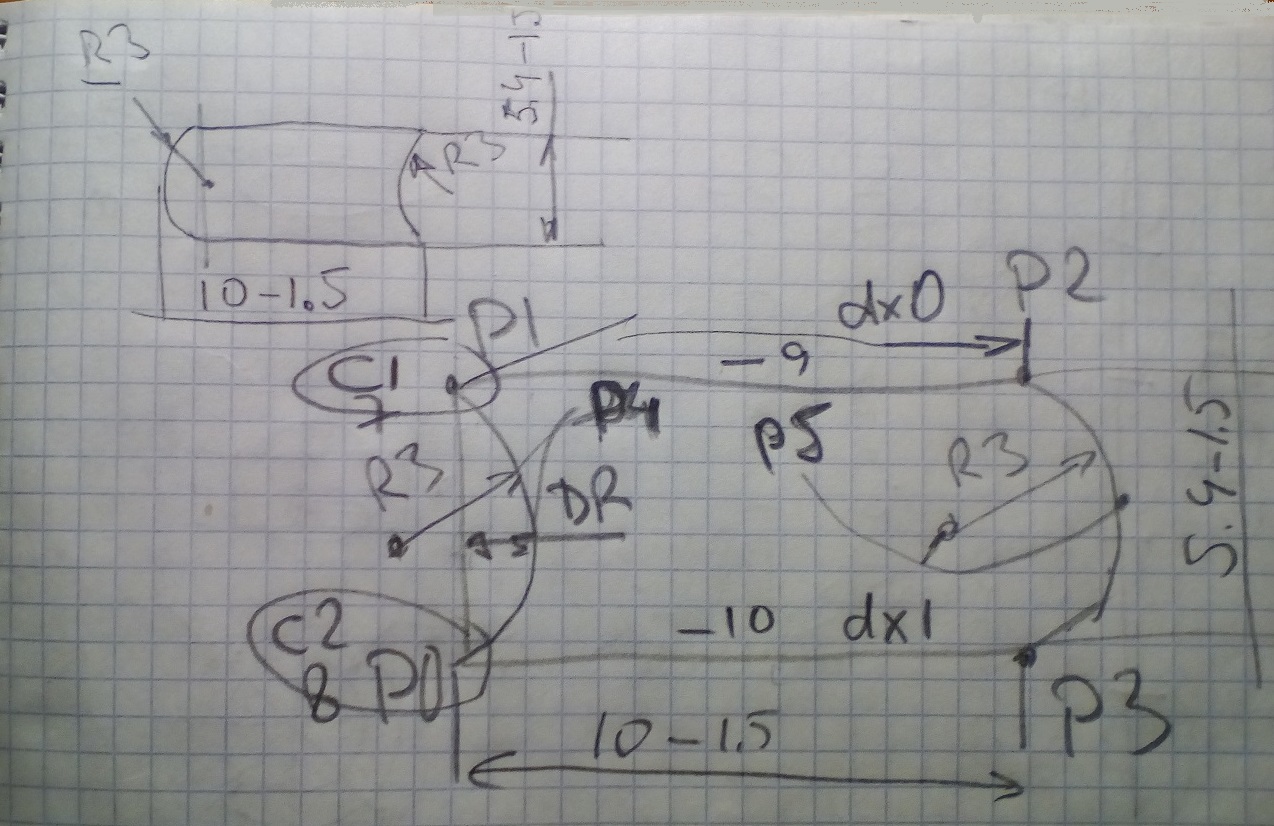 R3
5.4-1.5
R3
10-1.5
P1
dx0
P2
C1
7
-9
P4
P5
R3
R3
DR
5.4-1.5
C2
8
P0
-10
dx1
10-1.5
P3